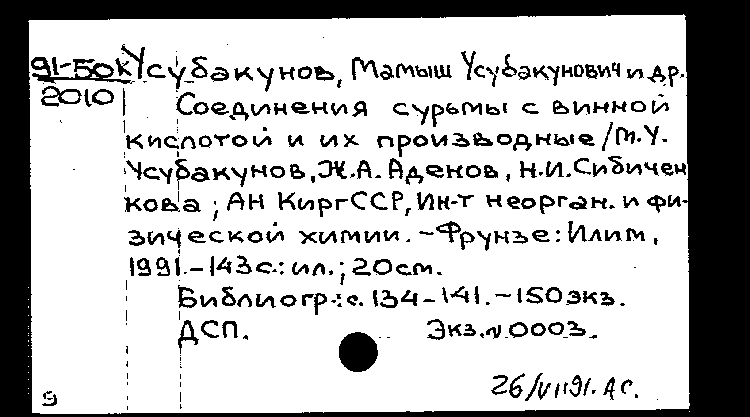 91-50к Усубакунов, Мамыш Усубакунович и др.
2010 Соединения сурьмы с винной
кислотой и их производные/М.У.
Усубакунов, Ж.А. Аденов, Н.И. Сибичен
кова; АН КиргССР, Ин-т неорган. и фи-
зической химии. - Фрунзе: Илим,
1991.-143с.: ил.; 20см.
Библиогр.: с. 134-141. - 150 экз.
ДСП. Экз.№ 0003.
9 26/VI 91. АС.